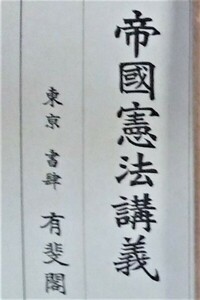 帝國憲法講義
東京 書肆 有斐閣